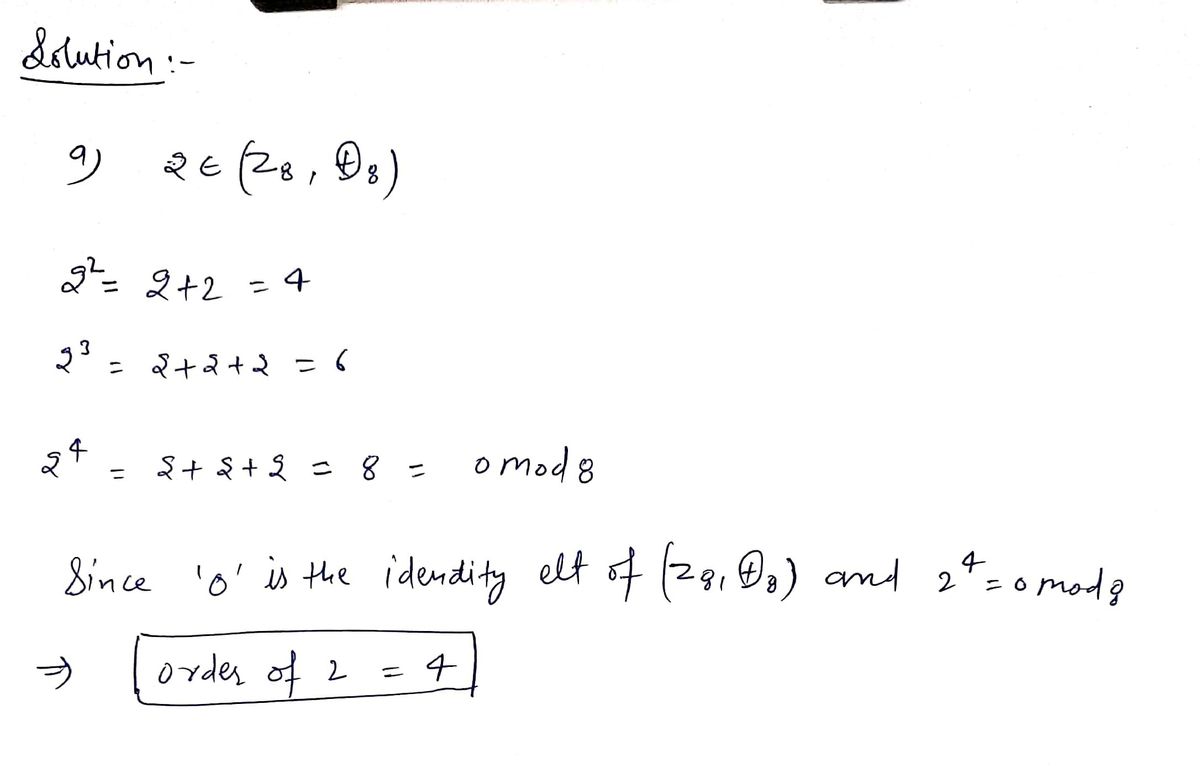 Solution :-
a) 2 ∈ (Z8, ⊕8)
2² = 2+2 = 4
2³ = 2+2+2 = 6
2⁴ = 2+2+2 = 8 = 0 mod 8
Since '0' is the idendity elt of (Z8, ⊕8) and 2⁴ = 0 mod 8
⇒ order of 2 = 4